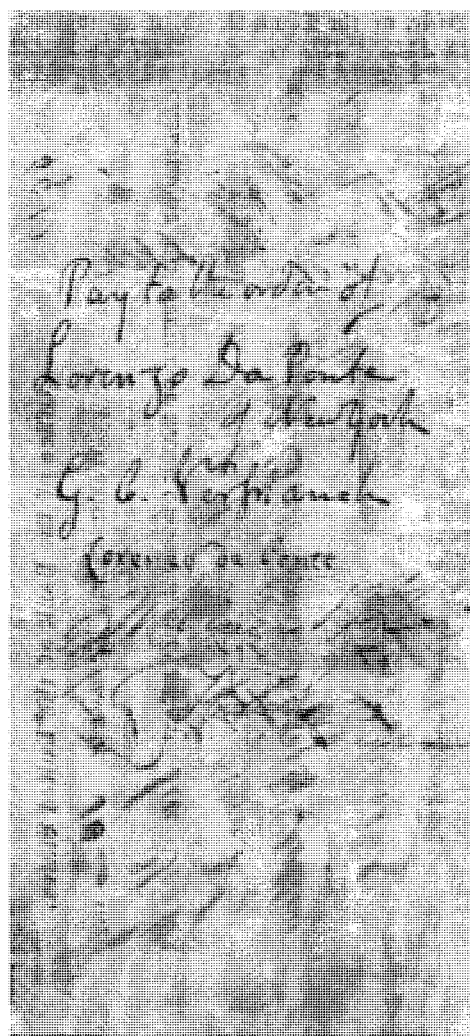 Pay to the order of
Lorenzo Da Ponte
of New York
G. C. Verplanck
Lorenzo Da Ponte